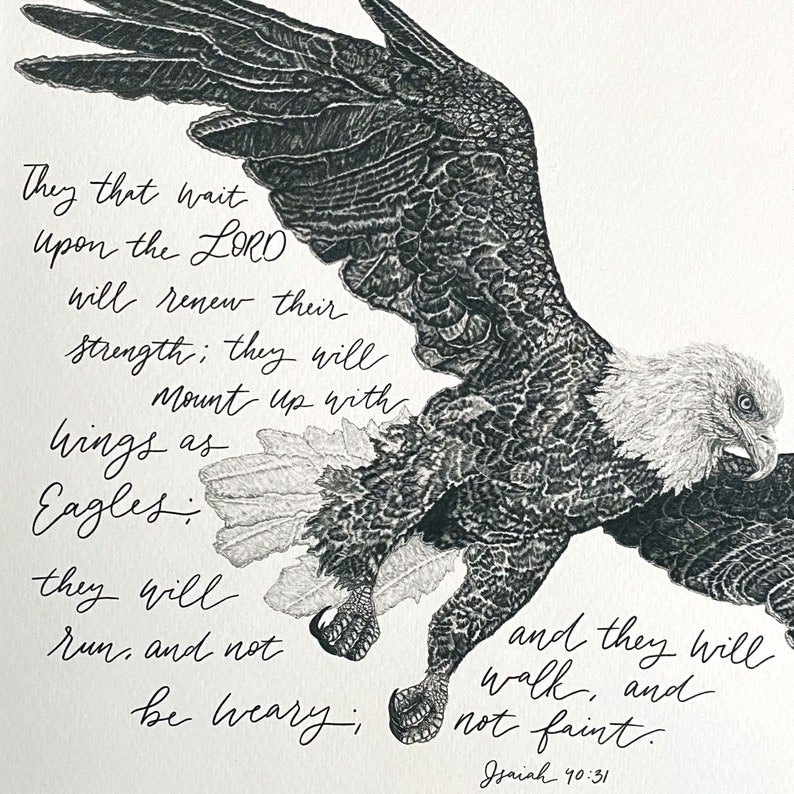 They that wait
upon the LORD
will renew their
strength; they will
mount up with
wings as
Eagles;
they will
run, and not
be weary;
and they will
walk, and
not faint.
Isaiah 40:31